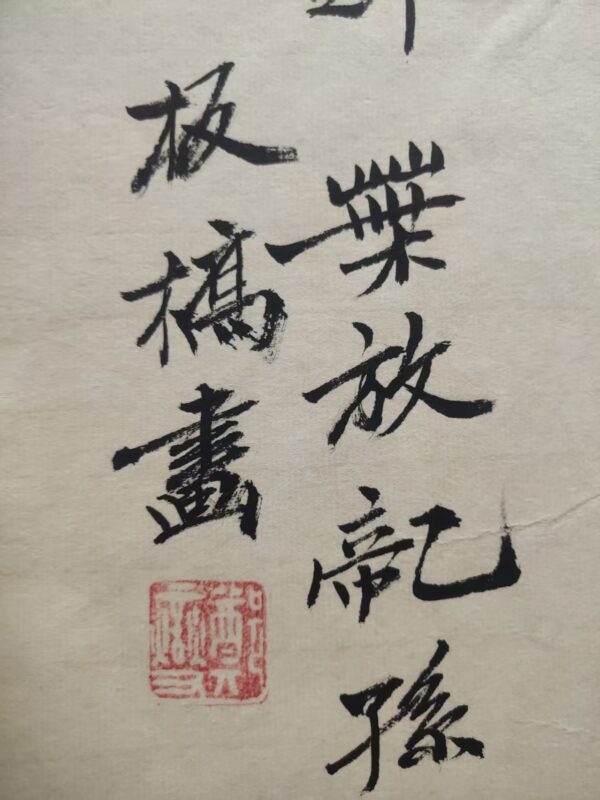 葉放龍孫
板橋畫